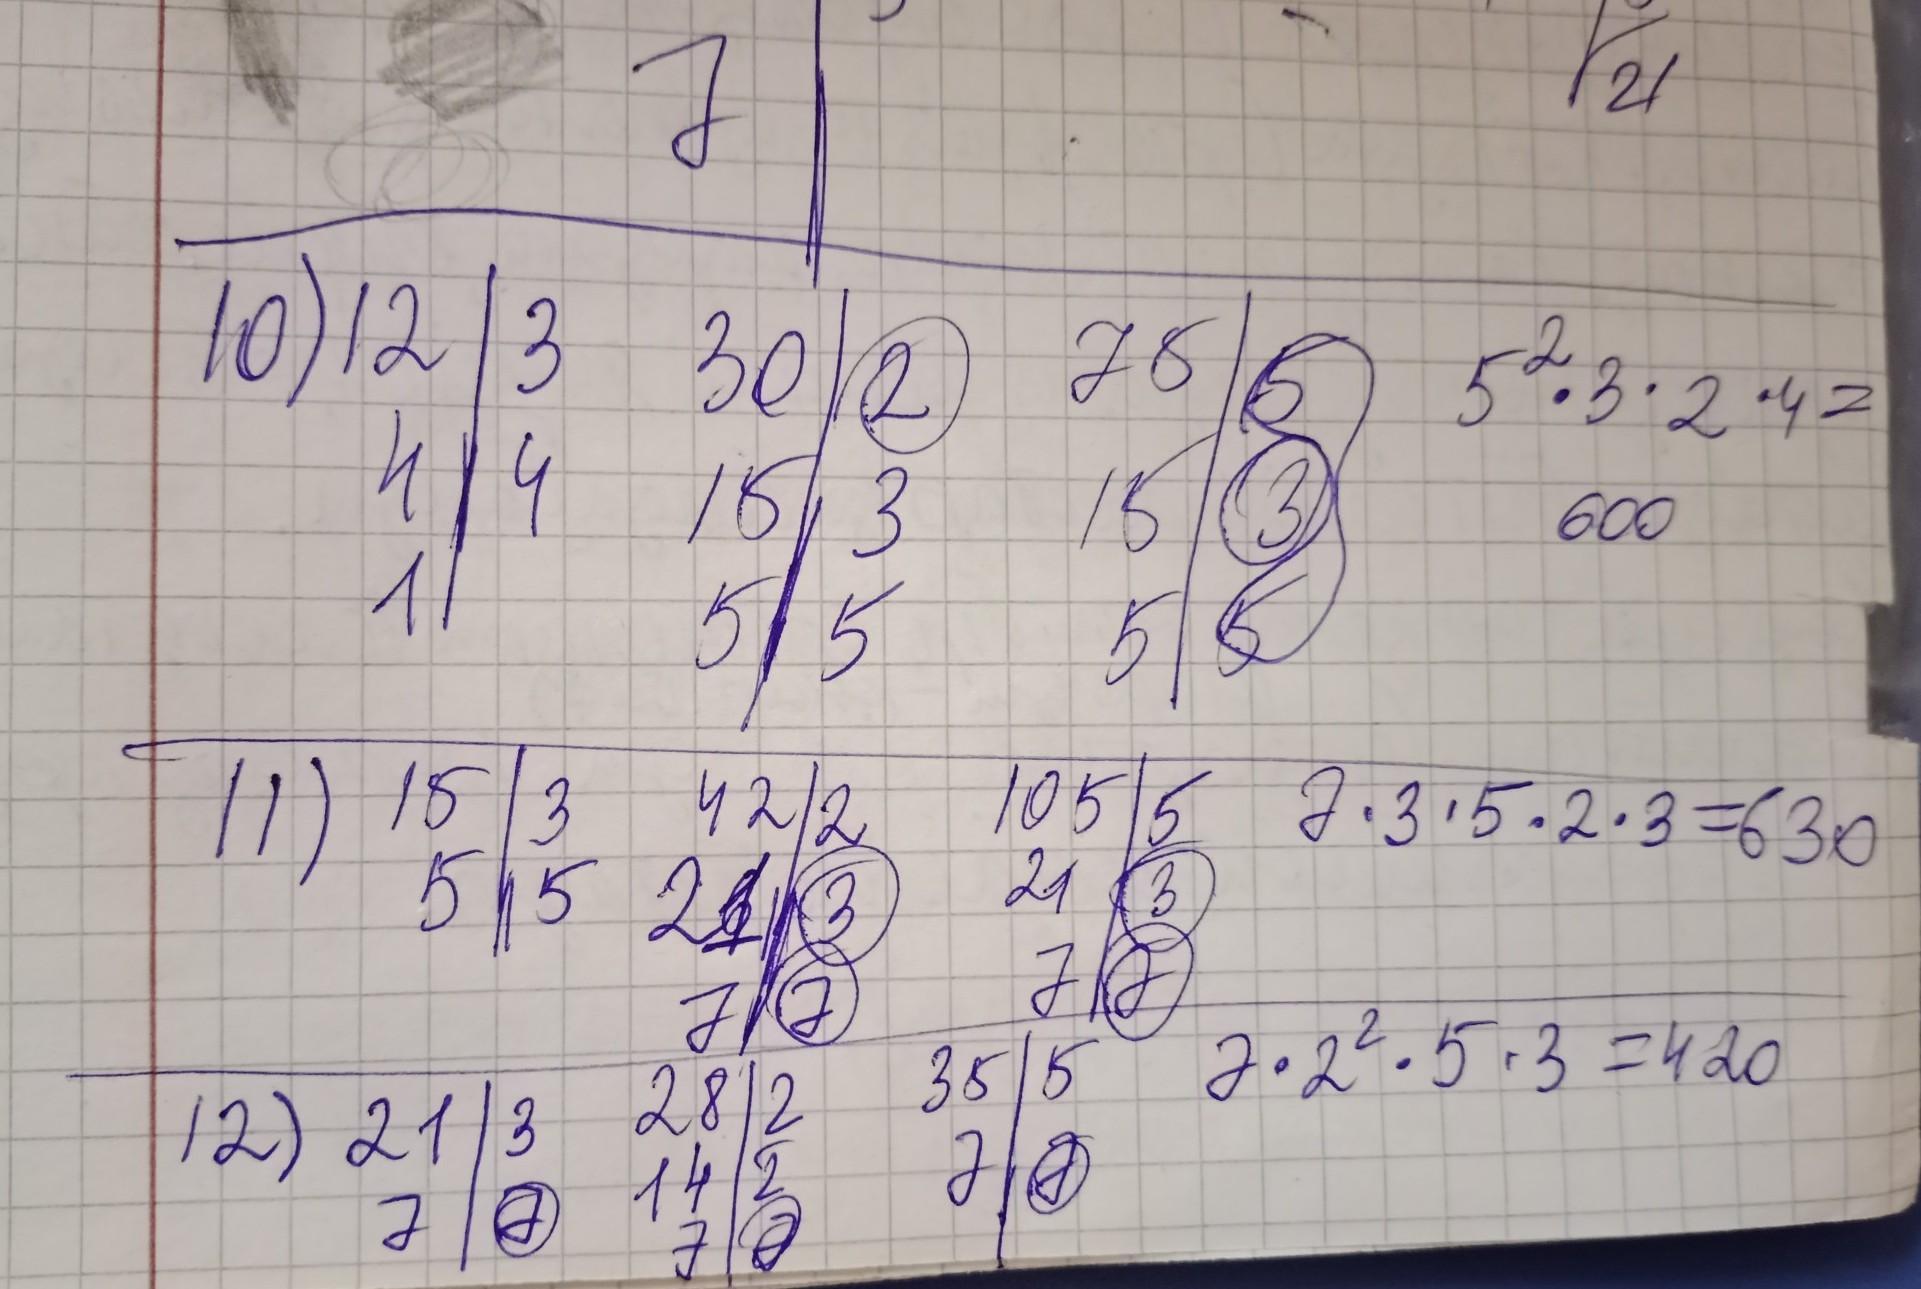 7 21
10) 12 | 3 30 | 2 75 | 5 5²·3·2·4=
4 | 4 15 | 3 15 | 3 600
1 | 5 | 5 5 | 5
11) 15 | 3 42 | 2 105 | 5 7·3·5·2·3=630
5 | 5 21 | 3 21 | 3
7 | 7 7 | 7
12) 21 | 3 28 | 2 35 | 5 7·2²·5·3=420
7 | 7 14 | 2 7 | 7
7 | 7